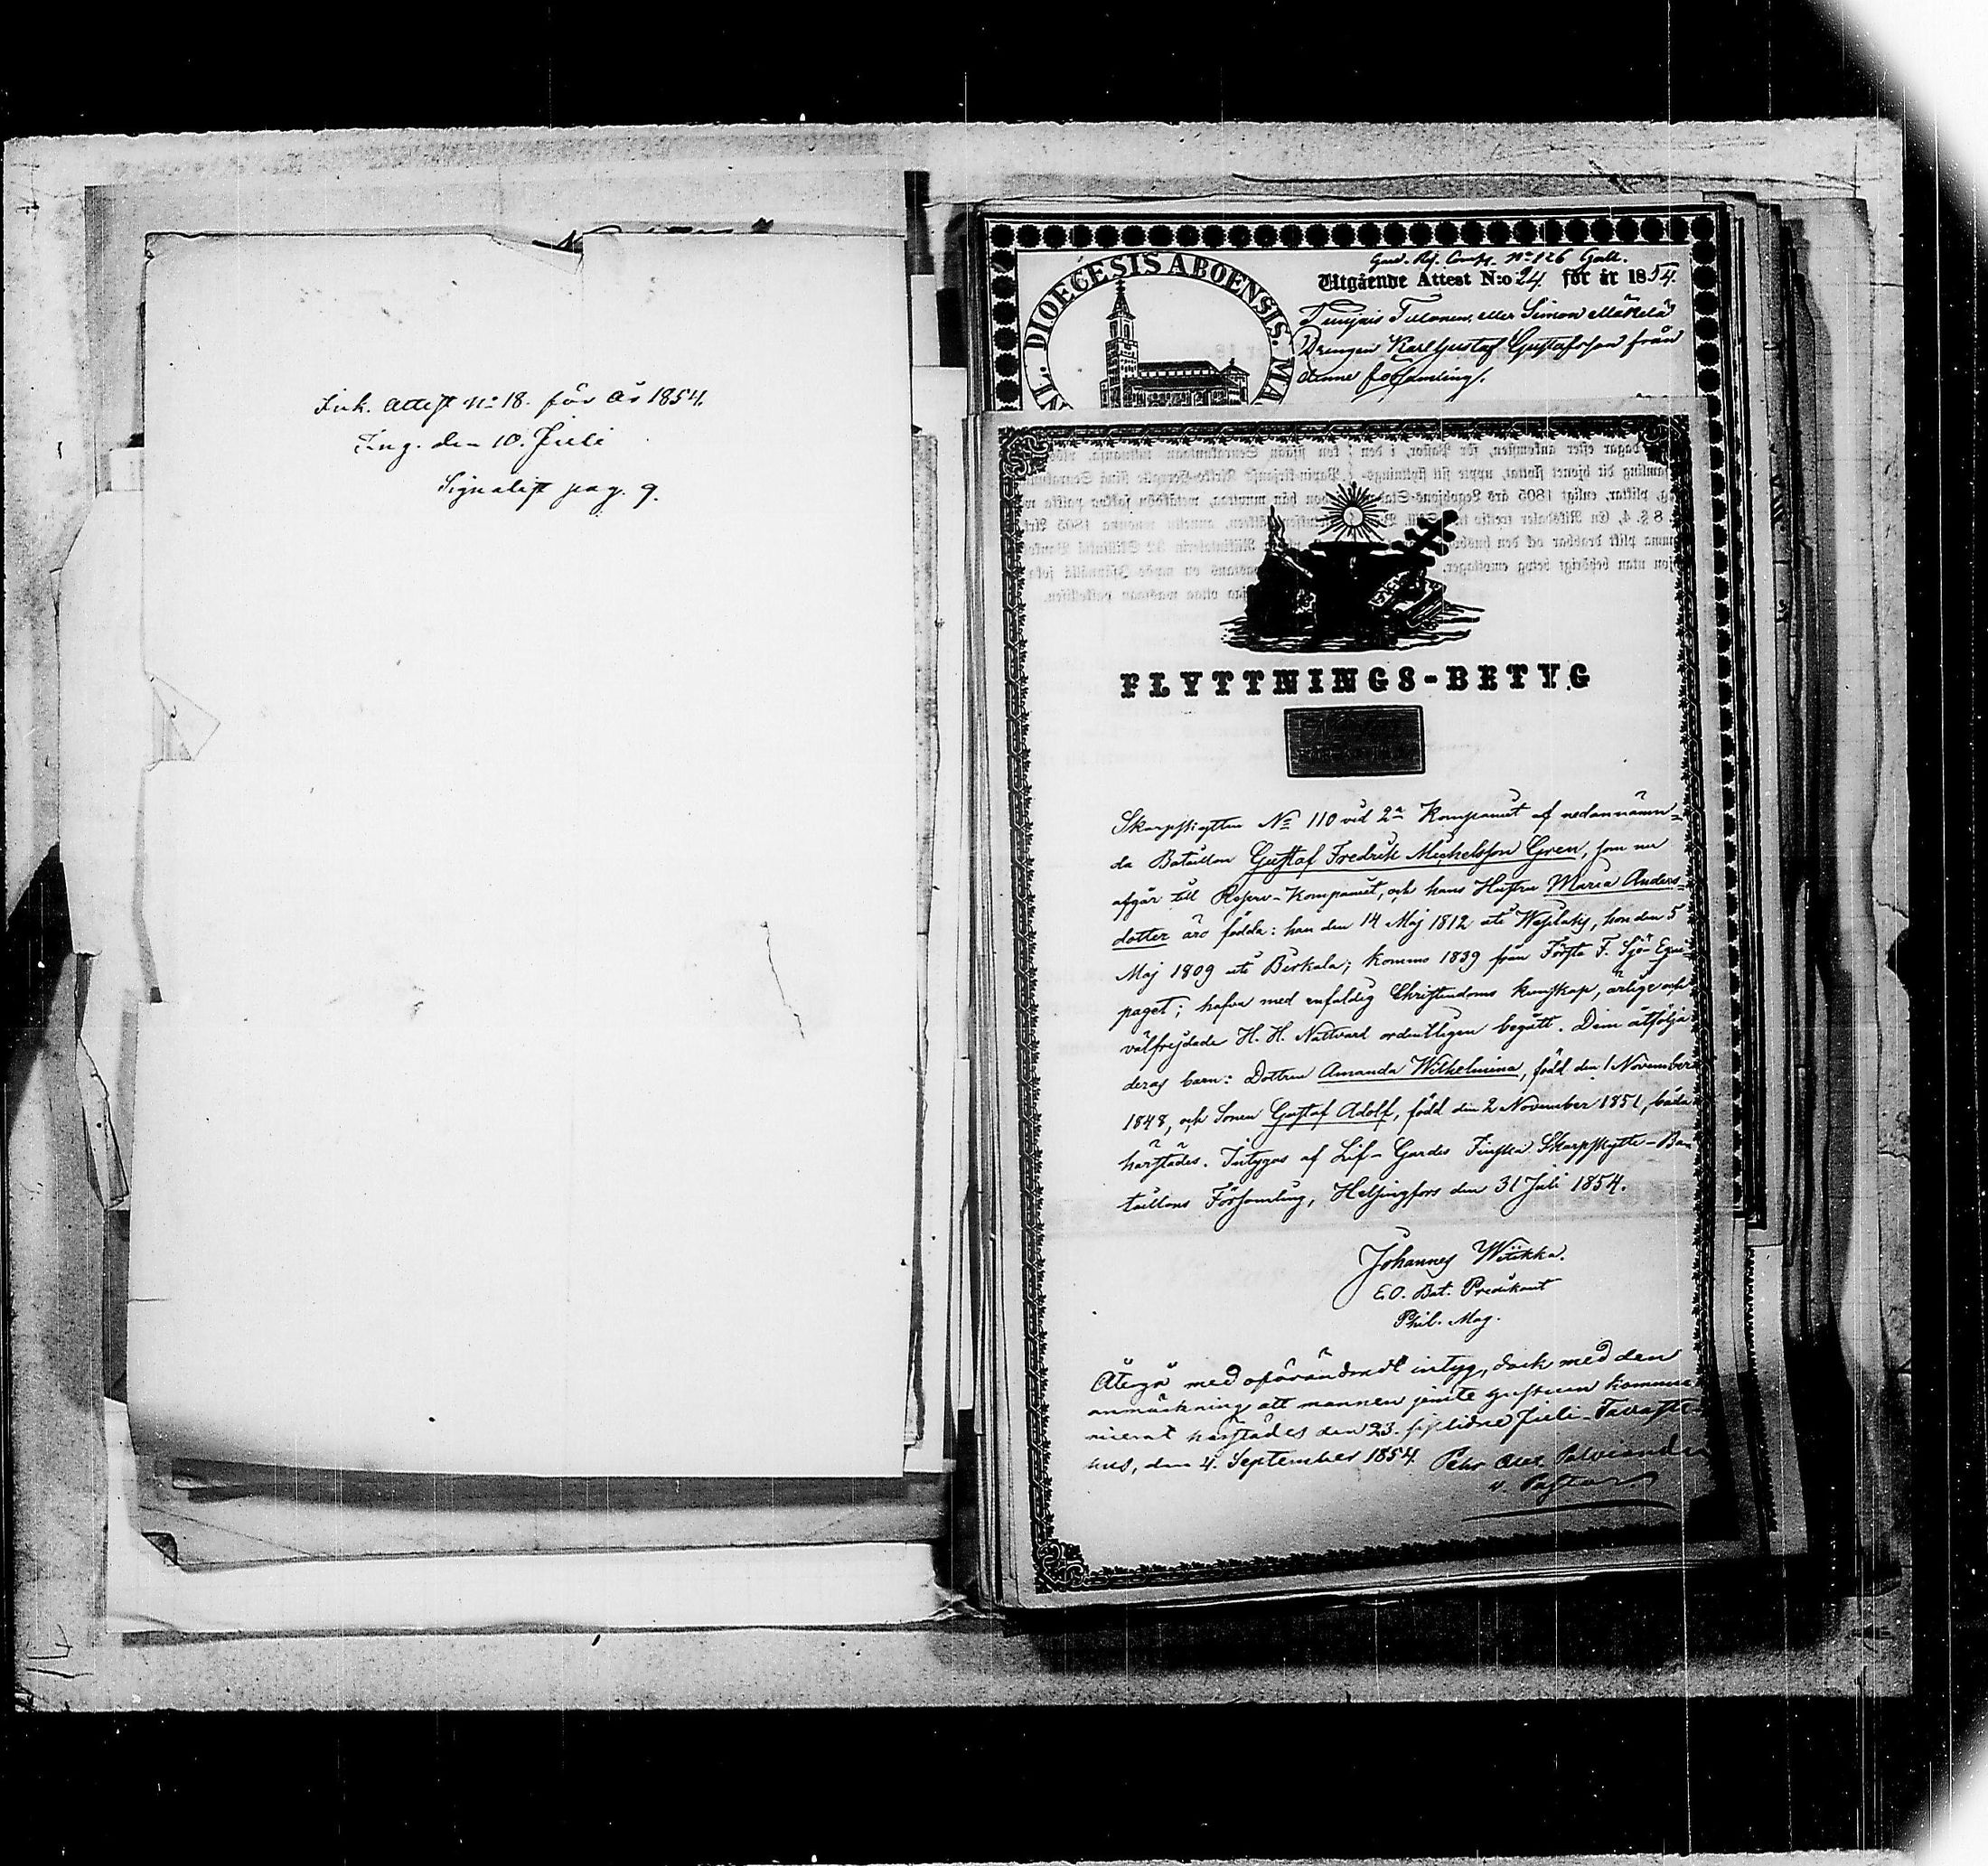 Ink. Attest No 18. för år 1854.
Ing. den 10. Juli
Signalist pag. 9.
DIOECESIS ABOENSIS. MA
No 126
Utgående Attest N:o 24 för år 1854.
Simon Mäkelä
Drengen Karl Gustaf Gustafsson från
denne församling.
FLYTTNINGS-BETYG
Skarpskytten No 110 vid 2a Kompaniet af nedannämn-
da Bataillon Gustaf Fredrik Michelsson Gren, som nu
afgår till Reserv-Kompaniet, och hans Hustru Maria Anders-
dotter äro födda: han den 14 Maj 1812 uti Wesilaks, hon den 5
Maj 1809 uti Birkala; komna 1839 från Första F. Sjö-Equi-
paget; hafva med enfaldig Christendoms kunskap, ärlige och
välfrejdade H. H. Nattvard ordentligen begått. Dem åtfölja
deras barn: Dottren Amanda Wilhelmina, född den 1 November
1848, och Sonen Gustaf Adolf, född den 2 November 1851, båda
härstädes. Intygas af Lif-Gardes Finska Skarpskytte-Ba-
taillons Församling, Helsingfors den 31 Juli 1854.
Johannes Witikka.
E.O. Bat. Predikant
Phil. Mag.
Återgår med oförändradt intyg, dock med den
anmärkning att mannen jemte hustrun kommu-
nicerat härstädes den 23. sistlidne Juli. Tavaste-
hus, den 4. September 1854. Pehr Alex.
v. Pastor.